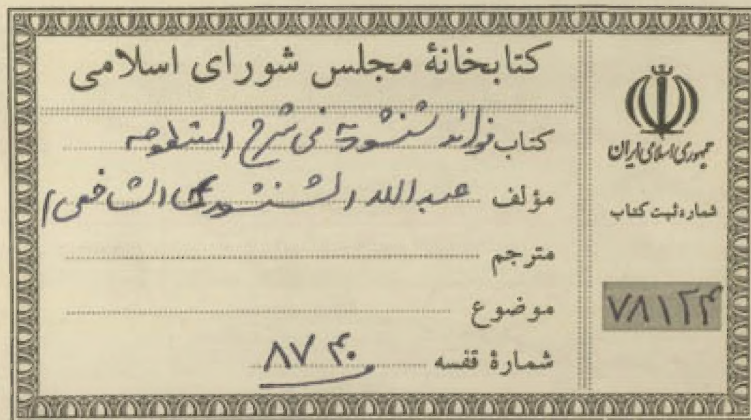 کتابخانهٔ مجلس شورای اسلامی
کتاب فوائد شنشوریة فی شرح المنظومه
مؤلف عبدالله الشنشوری الشافعی
مترجم
موضوع
شمارهٔ قفسه ۸۷۴۰
جمهوری اسلامی ایران
شماره ثبت کتاب
۷۸۱۲۴